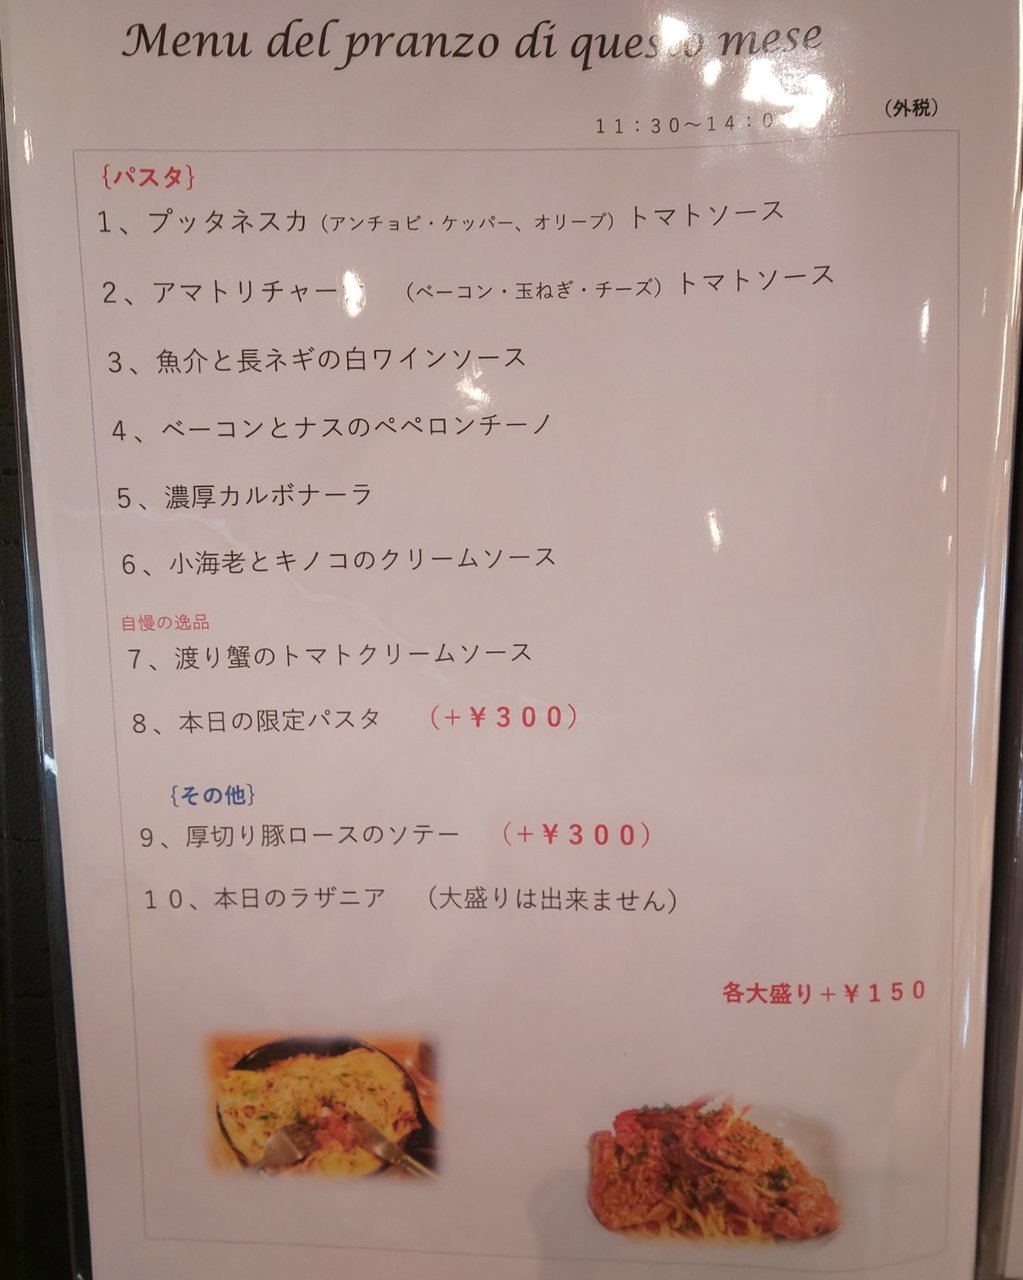 Menu del pranzo di questo mese
(外税)
11:30~14:0
{パスタ}
1、プッタネスカ(アンチョビ・ケッパー、オリーブ)トマトソース
2、アマトリチャー (ベーコン・玉ねぎ・チーズ)トマトソース
3、魚介と長ネギの白ワインソース
4、ベーコンとナスのペペロンチーノ
5、濃厚カルボナーラ
6、小海老とキノコのクリームソース
自慢の逸品
7、渡り蟹のトマトクリームソース
8、本日の限定パスタ (+¥300)
{その他}
9、厚切り豚ロースのソテー (+¥300)
10、本日のラザニア (大盛りは出来ません)
各大盛り+¥150